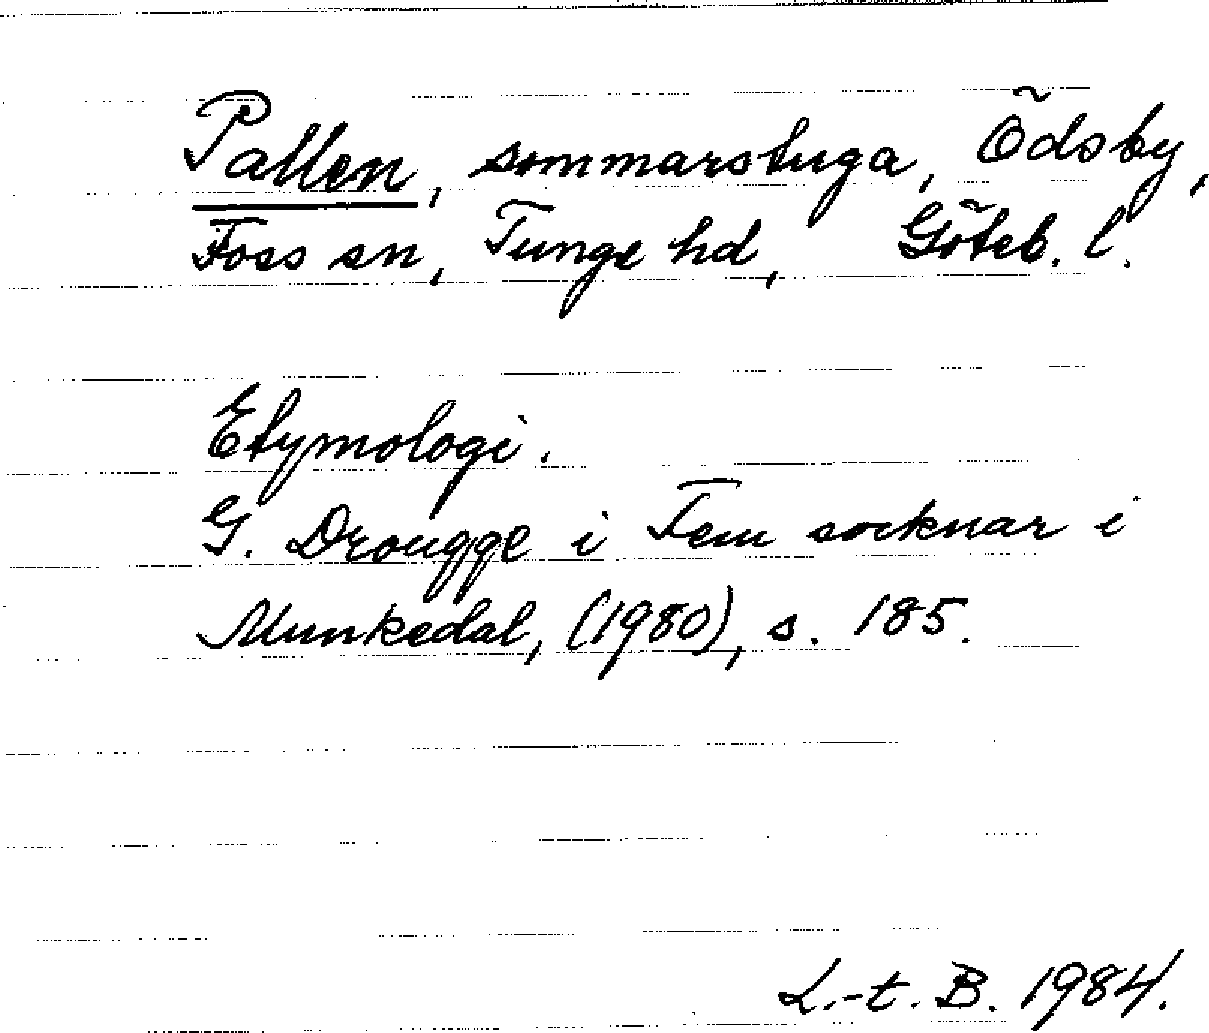 Pallen, sommarstuga, Ödsby,
Foss sn, Tunge hd, Göteb. l.
Etymologi.
G. Drougge i Fem socknar i
Munkedal, (1980), s. 185.
L.-t. B. 1984.